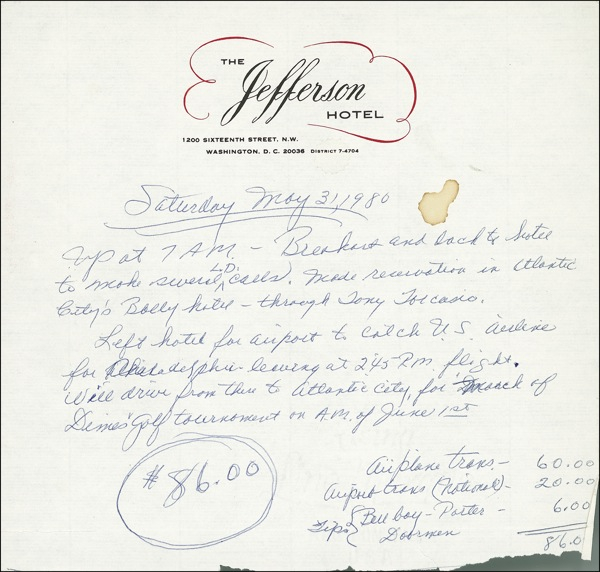 THE
Jefferson
HOTEL
1200 SIXTEENTH STREET, N.W.
WASHINGTON, D. C. 20036 DISTRICT 7-4704
Saturday May 31, 1980
Up at 7 A.M. - Breakfast and back to hotel
to make several L.D. calls. Made reservation in Atlantic
City's Bally hotel - through Tony Torcasio.
Left hotel for airport to catch U.S. airline
for Philadelphia - leaving at 2:45 P.M. flight.
Will drive from there to Atlantic City, for March of
Dimes Golf tournament on A.M. of June 1st
$86.00
Airplane trans - 60.00
Airport trans (National) - 20.00
Tips { Bell boy - Porter - 6.00
Doormen
86.0